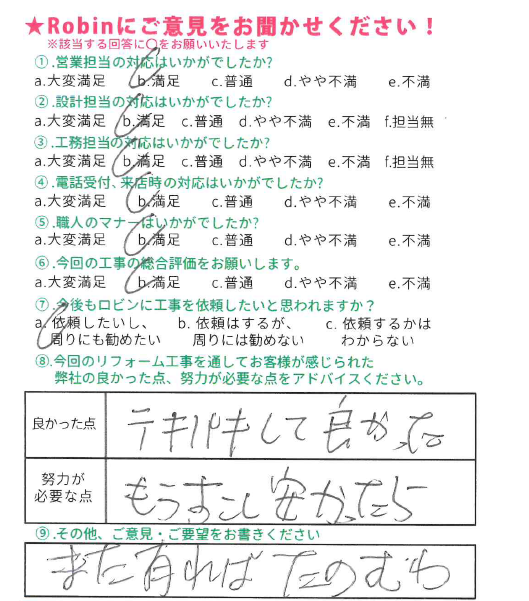 ★Robinにご意見をお聞かせください！
※該当する回答に〇をお願いいたします
①.営業担当の対応はいかがでしたか?
a.大変満足 b.満足 c.普通 d.やや不満 e.不満
②.設計担当の対応はいかがでしたか?
a.大変満足 b.満足 c.普通 d.やや不満 e.不満 f.担当無
③.工務担当の対応はいかがでしたか?
a.大変満足 b.満足 c.普通 d.やや不満 e.不満 f.担当無
④.電話受付、来店時の対応はいかがでしたか?
a.大変満足 b.満足 c.普通 d.やや不満 e.不満
⑤.職人のマナーはいかがでしたか?
a.大変満足 b.満足 c.普通 d.やや不満 e.不満
⑥.今回の工事の総合評価をお願いします。
a.大変満足 b.満足 c.普通 d.やや不満 e.不満
⑦.今後もロビンに工事を依頼したいと思われますか？
a.依頼したいし、 b.依頼はするが、 c.依頼するかは
周りにも勧めたい 周りには勧めない わからない
⑧.今回のリフォーム工事を通してお客様が感じられた
弊社の良かった点、努力が必要な点をアドバイスください。
良かった点 テキパキして良かった
努力が
必要な点 もうすこし安かったら
⑨.その他、ご意見・ご要望をお書きください
また有ればたのむわ